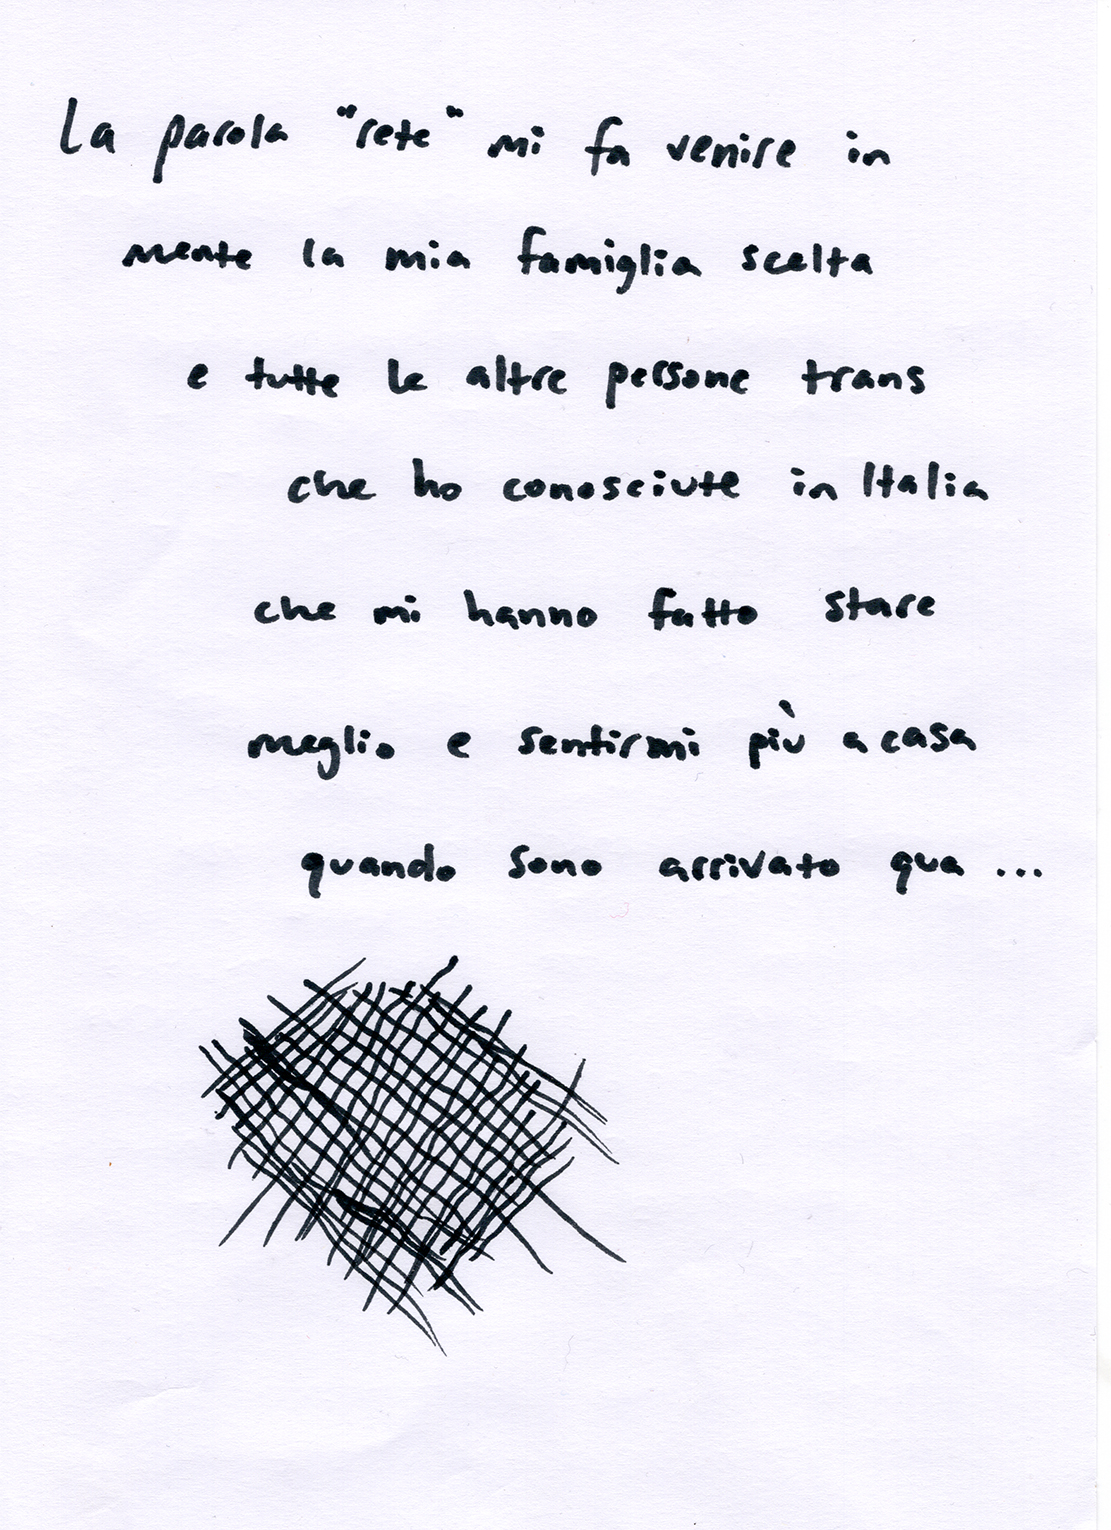 La parola "rete" mi fa venire in
mente la mia famiglia scelta
e tutte le altre persone trans
che ho conosciute in Italia
che mi hanno fatto stare
meglio e sentirmi più a casa
quando sono arrivato qua ...